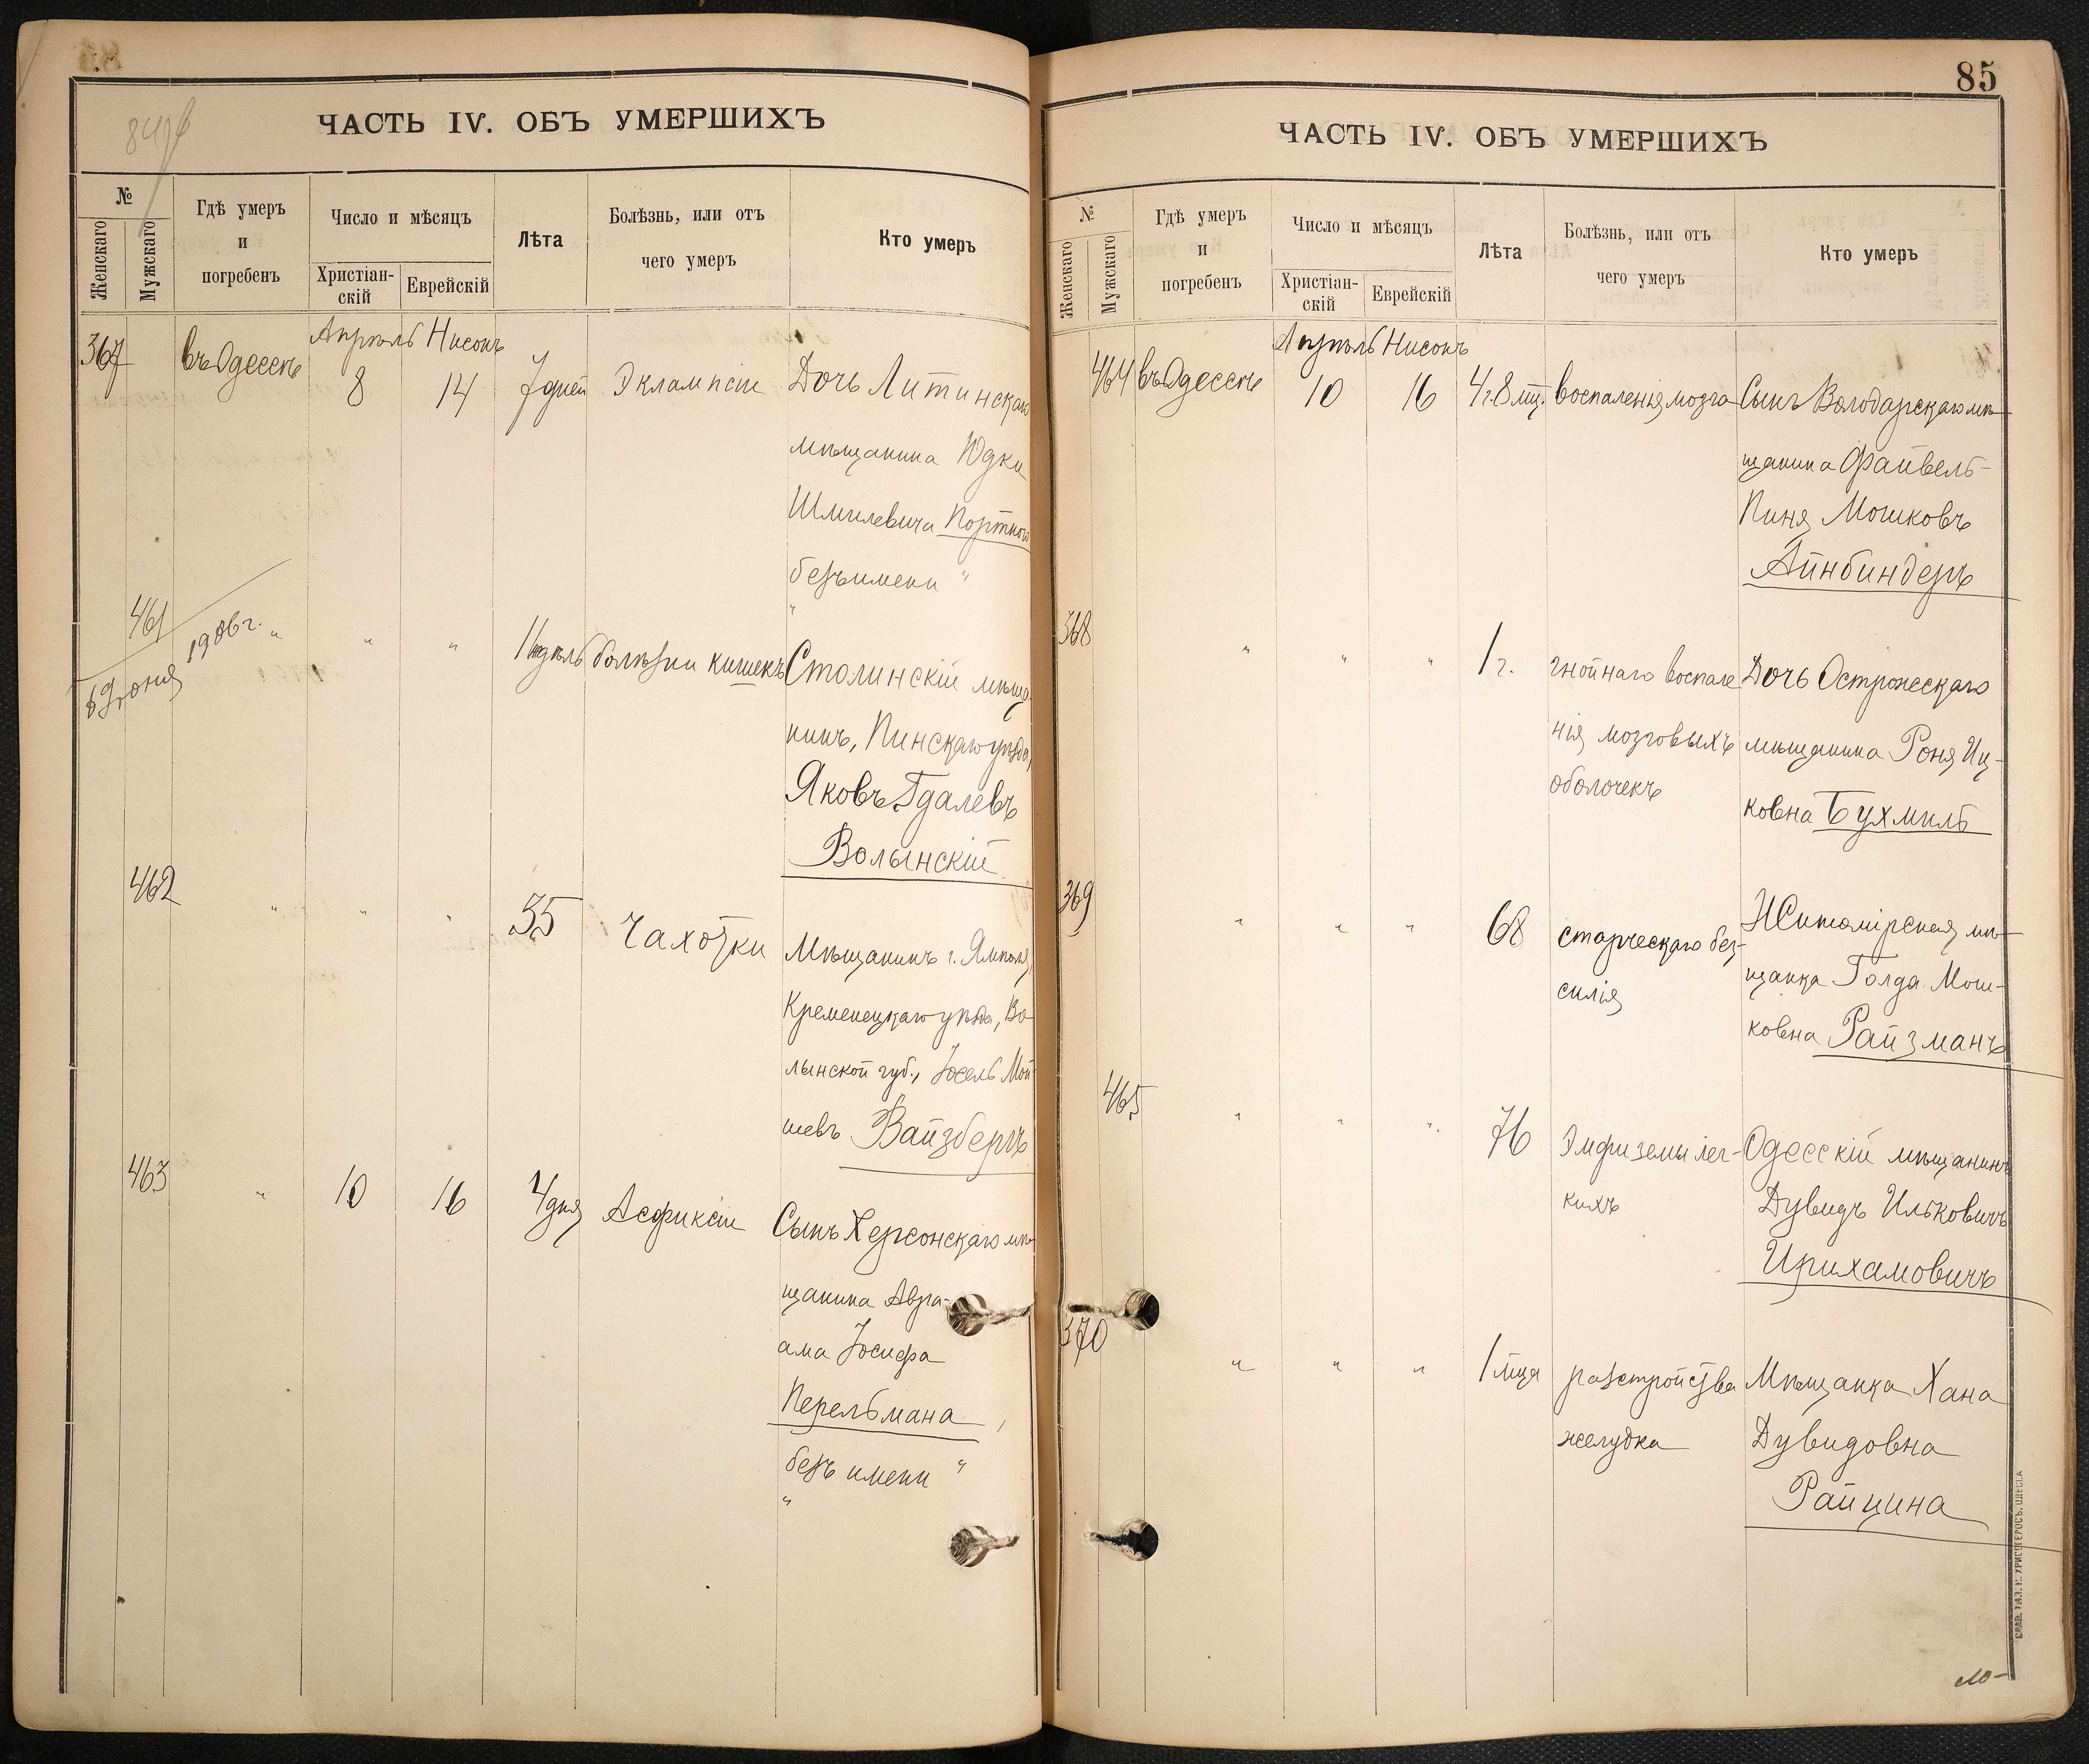 ЧАСТЬ IV. ОБЪ УМЕРШИХЪ
№
Женскаго
Мужскаго
Гдѣ умеръ
и
погребенъ
Число и мѣсяцъ
Христіан-
скій
Еврейскій
Лѣта
Болѣзнь, или отъ
чего умеръ
Кто умеръ
Апрѣль Нисонъ
367 въ Одессѣ 8 14 7 дней Эклампсіи Дочь Литинскаго
мѣщанина Юдки
Шмилевича Портного
безъ имени "
"
461 " " " 11 недѣль болѣзни кишекъ Столинскій мѣща
1906 г.
Іюня
нинъ, Пинскаго уѣзда,
Яковъ Гдалевъ
Волынскій
462 " " " 55 Чахотки Мѣщанинъ г. Ямполя,
Кременецкаго уѣзда, Во
лынской губ., Іосель Мой
шевъ Вайзбергъ
463 " 10 16 4 дня Асфиксіи Сынъ Херсонскаго мѣ
щанина Авра-
ама Іосифа
Перельмана,
безъ имени "
"
85
ЧАСТЬ IV. ОБЪ УМЕРШИХЪ
№
Женскаго
Мужскаго
Гдѣ умеръ
и
погребенъ
Число и мѣсяцъ
Христіан-
скій
Еврейскій
Лѣта
Болѣзнь, или отъ
чего умеръ
Кто умеръ
Апрѣль Нисонъ
464 въ Одессѣ 10 16 4 г. 8 мц. воспаленія мозга Сынъ Володарскаго мѣ-
щанина Файвель-
Пиня Мошковъ
Айнбиндеръ
368 " " " 1 г. гнойнаго воспале Дочь Острожескаго
нія мозговыхъ мѣщанина Роня Иц-
оболочекъ
ковна Бухмиль
369 " " " 68 старческаго без- Житомірская мѣ-
силія
щанка Голда Мош-
ковна Райзманъ
465 " " " 76 Эмфиземы лег- Одесскій мѣщанинъ
кихъ Дувидъ Ильковичъ
Ирихамовичъ
370 " " " 1 мца разстройства Мѣщанка Хана
желудка Дувидовна
Райцина